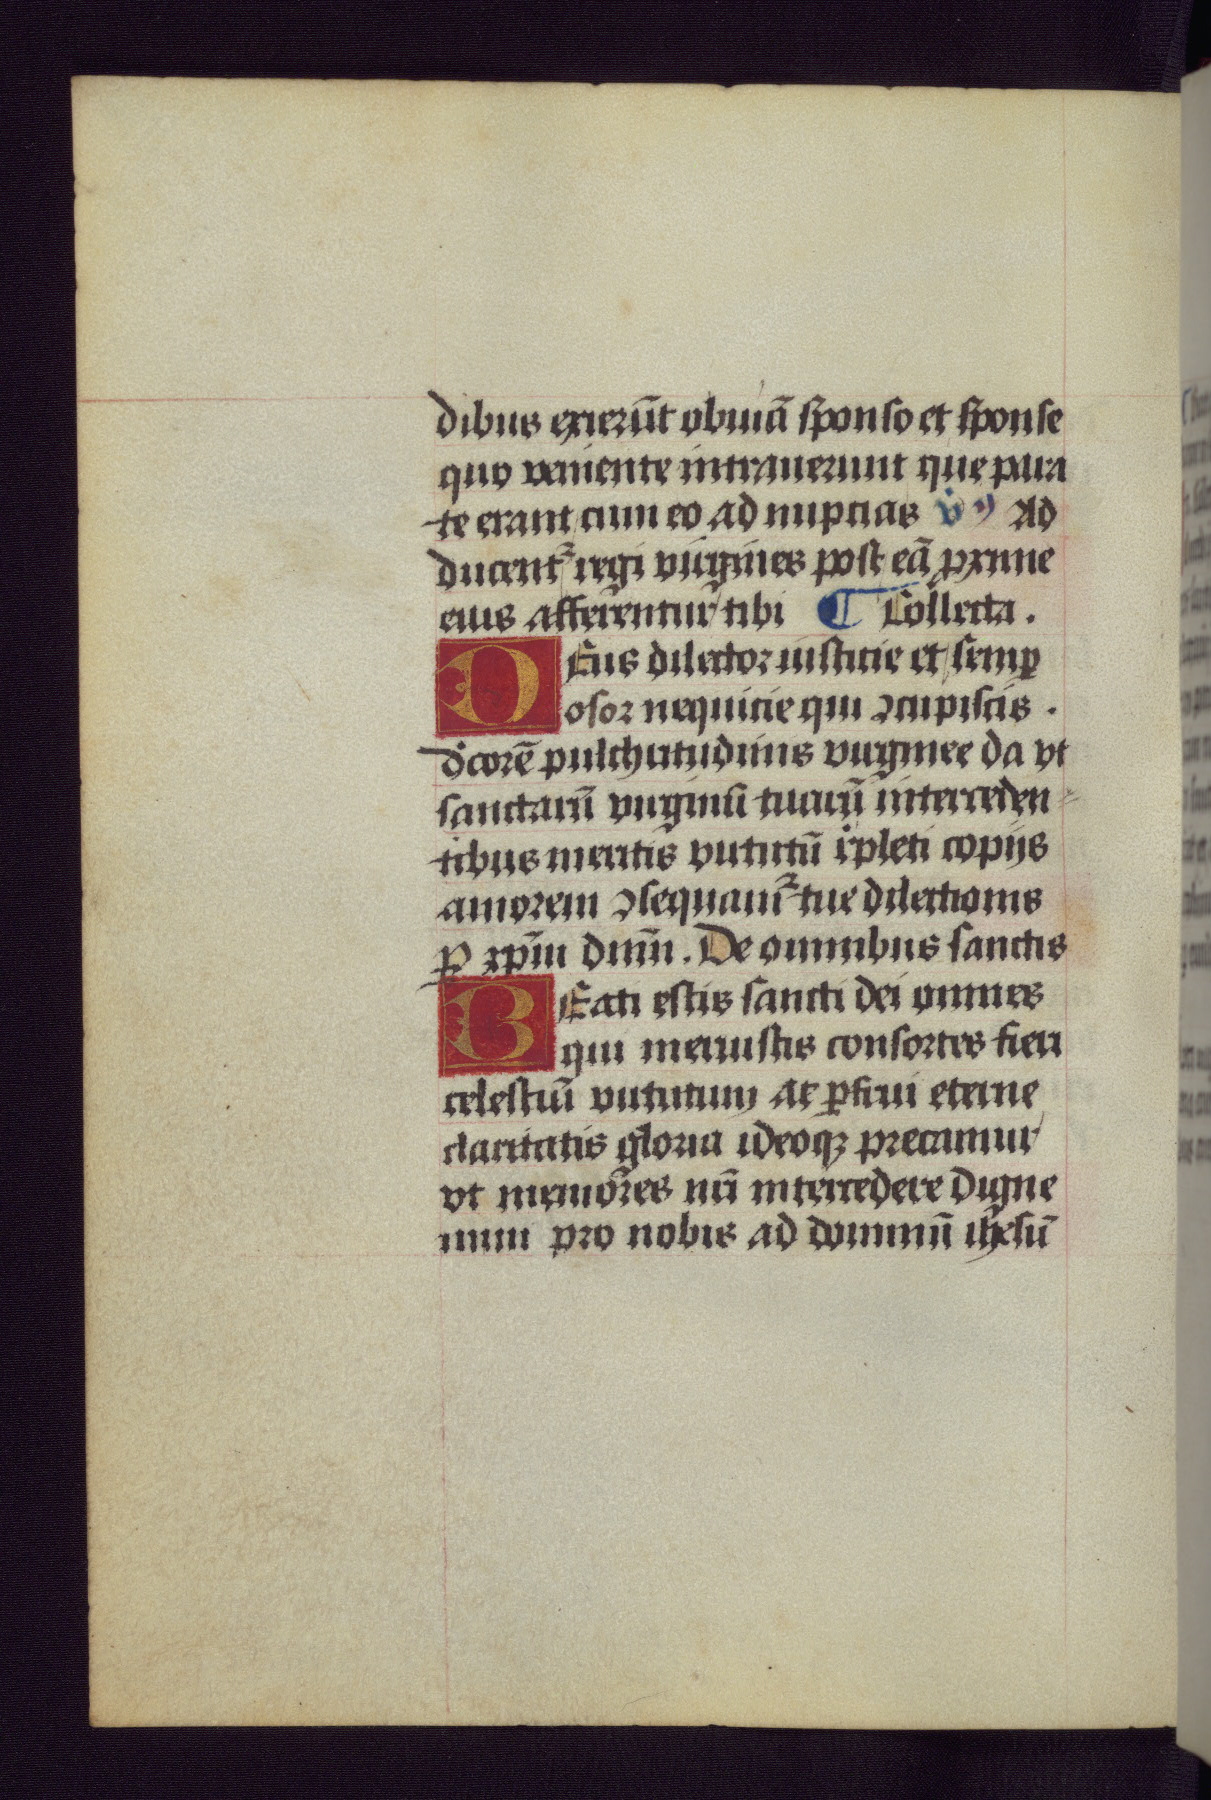 dibus exierūt obuiā sponso et sponse
quo veniente intrauerunt que para
te erant cum eo ad nupcias v̇ Ad
ducent᷑ regi virgines post eā ꝓxime
eius afferentur tibi ¶ Collecta.
DEus dilector iusticie et semꝑ
osor nequicie qui ꝯcupiscis.
decorē pulchritudinis virginee da vt
sanctarū virginū tuarū interceden
tibus meritis virtutū īpleti copijs
amorem ꝯsequamur᷑ tue dilectionis
ꝑ xp̄m dn̄m. De omnibus sanctis
BEati estis sancti dei omnes
qui meruistis consortes fieri
celestiū virtutum at ꝑfrui eterne
claritatis gloria ideoqꝫ precamur
vt memores nr̄i intercedere digne
mini pro nobis ad dominū ihesū